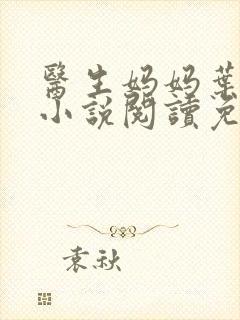 醫生媽媽葉
小說閱讀免
袁秋